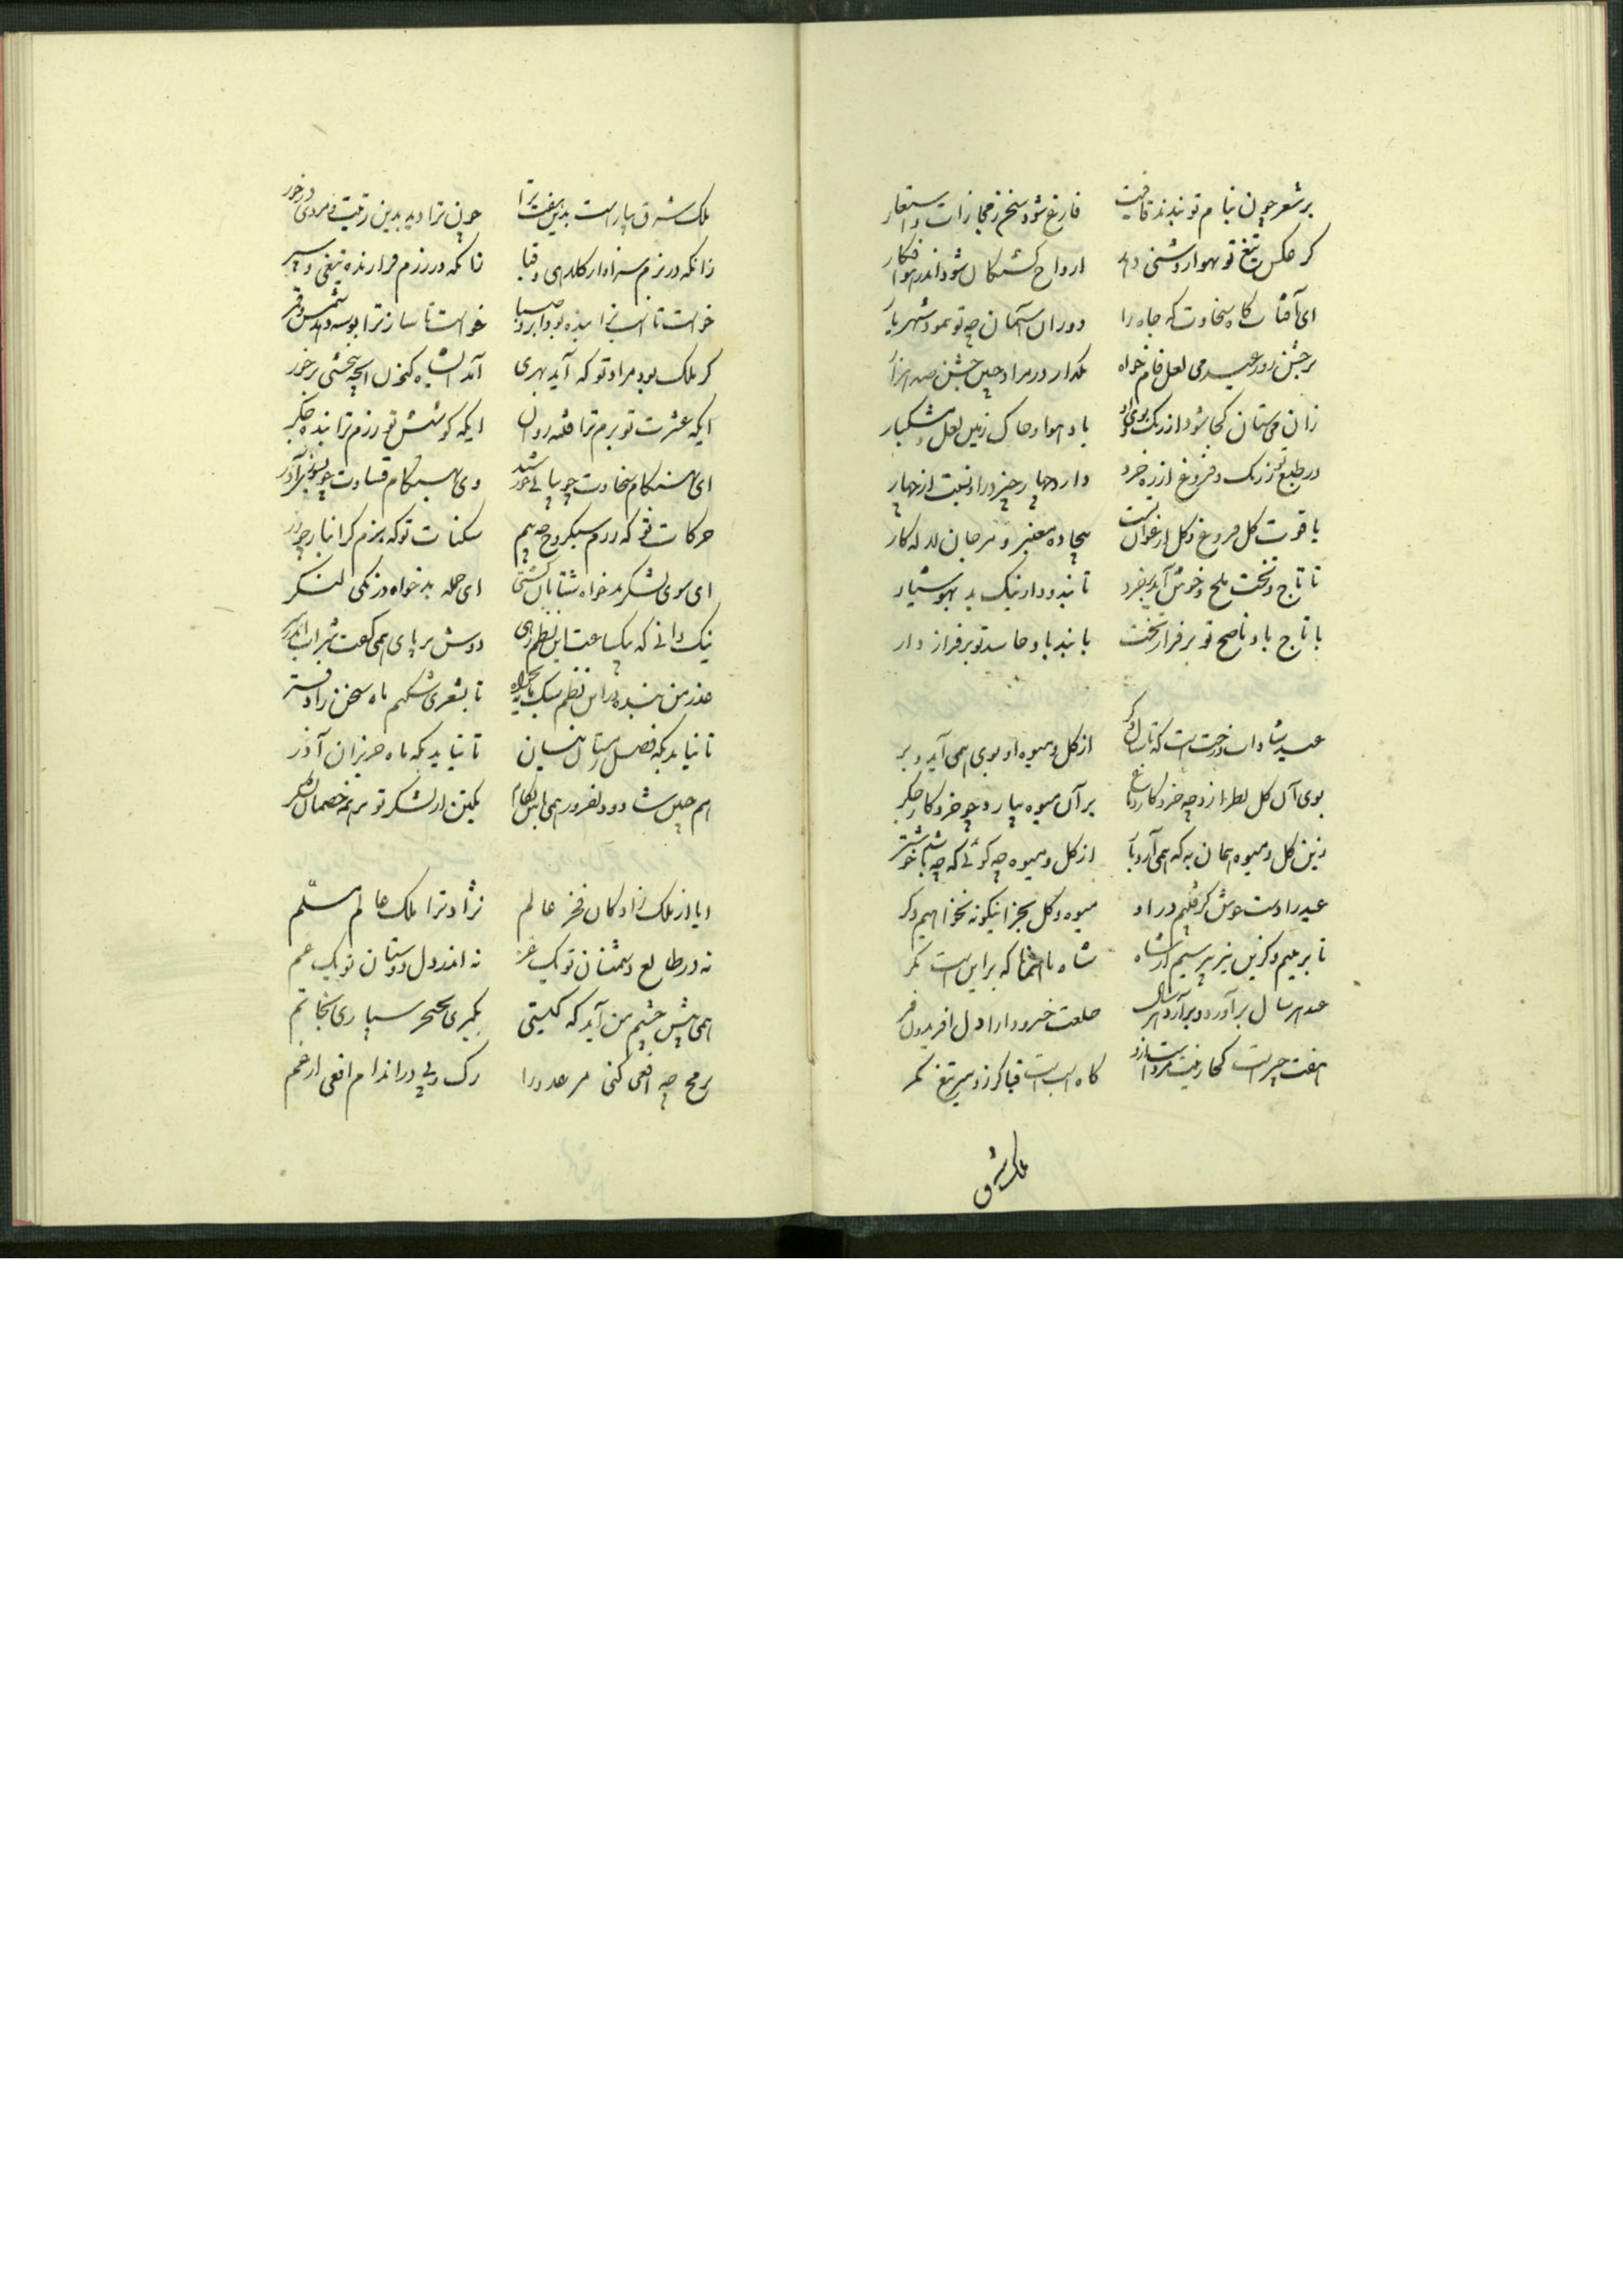 بر شعر چون بنام تو بندند قافیت فارغ شود سخن ز مجازات و استعار
گر عکس تیغ تو بهوا روشنی دهد ارواح کشتگان شود اندر هوا فکار
ای آفتاب گاه سخاوت که جاه را دوران آسمان چه تو ننمود شهریار
بر جشن روز عید می لعل فام خواه بگذار در مراد چنین جشن صد هزار
زان می ستان کجا شود از رنگ و بوی او باد هوا و خاک زمین لعل و مشکبار
در طبع و رنگ و فروغ از ره خرد دارد چهار چیز درا و نسبت از چهار
یاقوت گل فروغ و گل ارغوان بیجاده معنبر و مرجان لاله کار
تا تاج و تخت ملح و خوش آید بمرد تا بند و دار نیک بد بهوشیار
با تاج باد ناصح تو بر فراز تخت با بند باد حاسد تو بر فراز دار
عید شادان درخت است که تا سال دگر از گل و میوه او بوی همی آید و بر
بوی آن گل بطرازد چه خرد کار دماغ بر آن میوه بیارد چو خرد کار جگر
زین گل و میوه همان به که همی آرد بار از گل و میوه چه گوئی که چه باشد خوشتر
عید را دست خوش گرفتیم در او میوه و گل بجز اینگونه نخواهیم دگر
تا بر عیم و گزین نیز پرسیم از شاه شاه با نغما که بر این است مگر
عید هر سال برآورد و برآرد هر سال خلعت خسرو دارا دل افریدون فر
هفت چیر است کجا زینت مرد است از او کلاه است قبا گرز و سپر تیغ کمر
ملک شرق
ملک شرق بیاراست بدین هفت ترا چون ترا دید بدین زینت و مردی درخور
زانکه در بزم سزاوار کلاهی و قبا زانکه در رزم فرازنده تیغی و سپر
خواست تا اسب ترا بنده بود ابر و صبا خواست تا ساز ترا بوسه دهد شمس و قمر
گر ملک بود مراد تو که آید بهری آمد انشاه کنون انچه ببخشی برخور
ایکه عشرت تو بزم ترا قلعه روان ایکه کوشش تو رزم ترا بنده جگر
ای بهنگام سخاوت چو بپاکی خورشید وی بهنگام قساوت چو بسوزش آذر
حرکات تو که رزم سبکروح چه بیم سکنات تو که بزم گرانبار چو زر
ای سوی لشکر بدخواه شتابان کشتی ای حمله بدخواه درنگی لنگر
نیک دانی که بیکساعت این نظم رهی دوش بر پای همی گفت شراب اندر سر
عذر من بنده در این نظم سبک مایه بخواه تا بشعری شکنم ماه سخن را دفتر
تا نیاید بگه فصل زمستان نیسان تا نیاید بگه ماه حزیران آذر
هم چنین شاد و دلفروز همی باش بکام یکتن از لشکر تو بر همه خصمان لشکر
ایا از ملک زادگان فخر عالم نژاد ترا ملک عالم مسلّم
نه در طالع دشمنان تو یک عز نه اندر دل دوستان تو یک غم
همی پیش چشم من آید که گیتی بگیری بخنجر سپاری بخاتم
برمح چه افعی کنی مر عدو را رگ و پی در اندام افعی ارقم